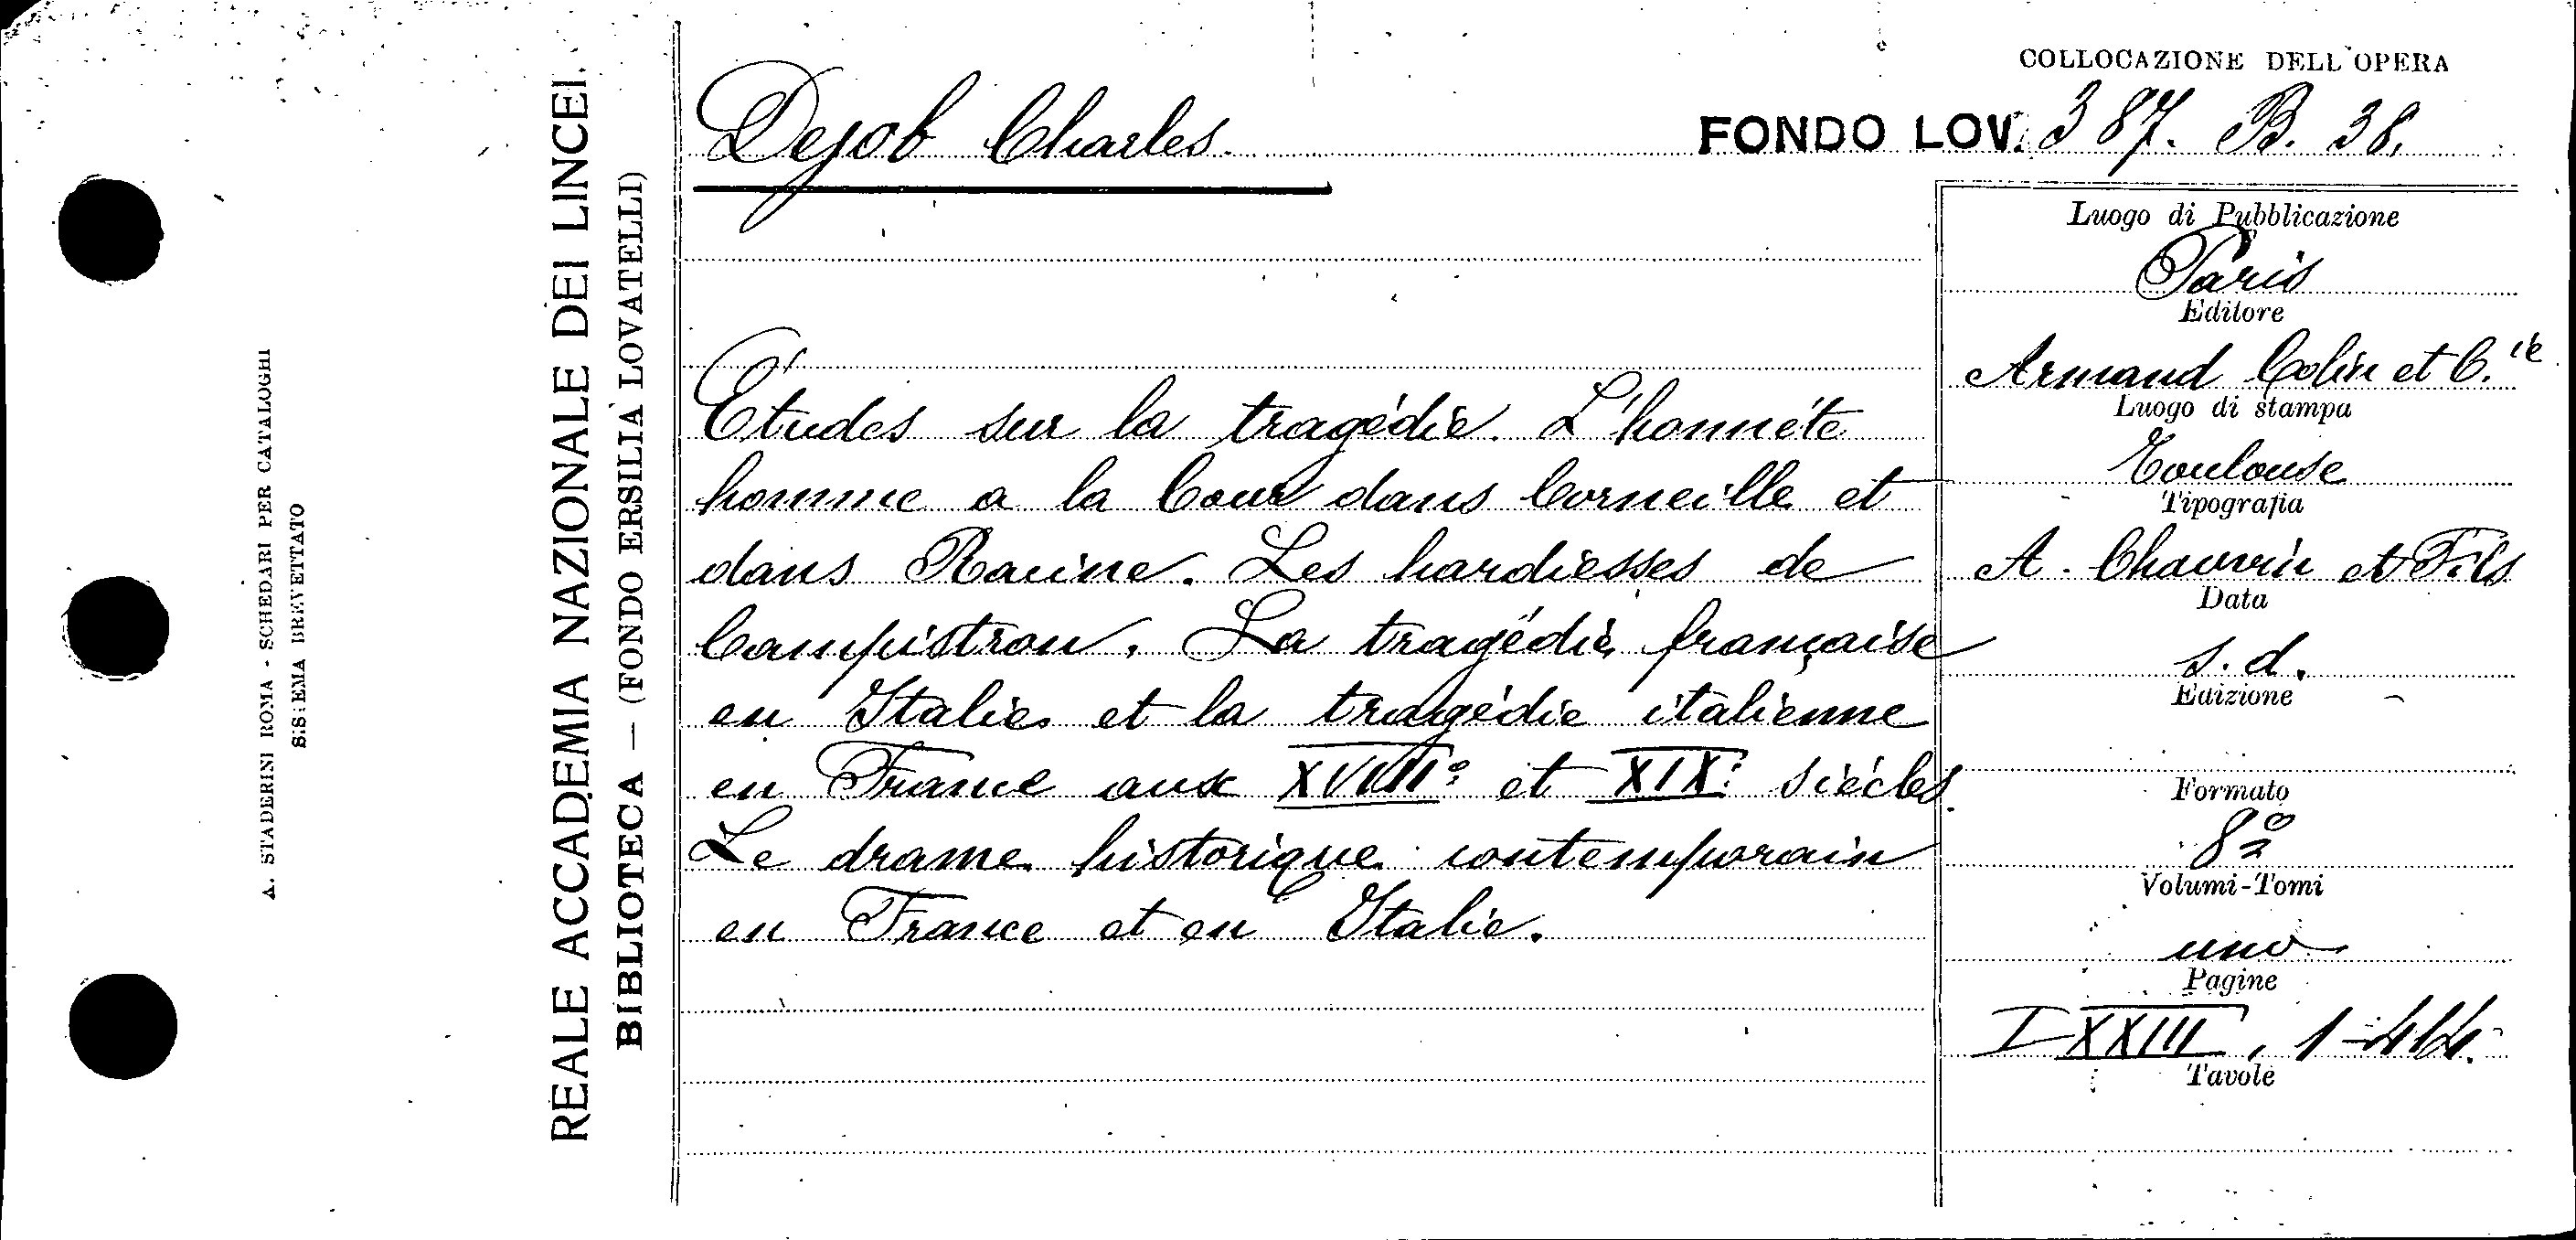 COLLOCAZIONE DELL'OPERA
Dejob Charles.
FONDO LOV. 387. B. 38.
Études sur la tragédie. L'honnéte
homme a la Cour dans Corneille et
dans Racine. Les hardiesses de
Campistron. La tragédie française
en Italie et la tragédie italienne
en France aux XVIIIº et XIXº siécles.
Le drame historique contemporain
en France et en Italie.
Luogo di Pubblicazione
Paris
Editore
Armand Colin et C.ie
Luogo di stampa
Toulouse
Tipografia
A. Chauvin et Fils
Data
s. d.
Edizione
Formato
8º
Volumi-Tomi
uno
Pagine
I-XXIII, 1-414.
Tavole
REALE ACCADEMIA NAZIONALE DEI LINCEI.
BIBLIOTECA — (FONDO ERSILIA LOVATELLI)
A. STADERINI ROMA - SCHEDARI PER CATALOGHI
SISTEMA BREVETTATO